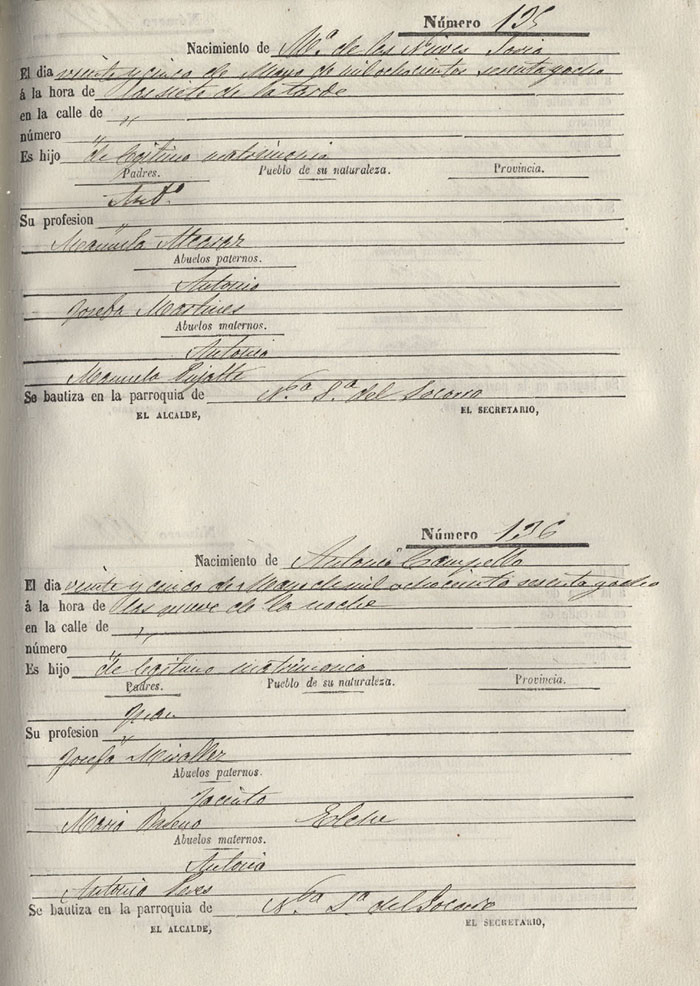 Número 135
Nacimiento de Mª de los Nieves
El dia veinte y cinco de Mayo de mil ochocientos sesenta y ocho
á la hora de las siete de la tarde
en la calle de „
número „
Es hijo de legitimo matrimonio
Padres. Pueblo de su naturaleza. Provincia.
Antº
Su profesion „
Manuela
Abuelos paternos.
Antonio
Josefa Martines
Abuelos maternos.
Antonio
Manuela Pujalte
Se bautiza en la parroquia de Nª Sª del Socorro
EL ALCALDE, EL SECRETARIO,
Número 136
Nacimiento de Antonia Campello
El dia veinte y cinco de Mayo de mil ochocientos sesenta y ocho
á la hora de las nueve de la noche
en la calle de „
número „
Es hijo de legitimo matrimonio
Padres. Pueblo de su naturaleza. Provincia.
Juan
Su profesion „
Josefa Miralles
Abuelos paternos.
Jacinto
Maria Elche
Abuelos maternos.
Antonio
Antonia Peres
Se bautiza en la parroquia de Nª Sª del Socorro
EL ALCALDE, EL SECRETARIO,